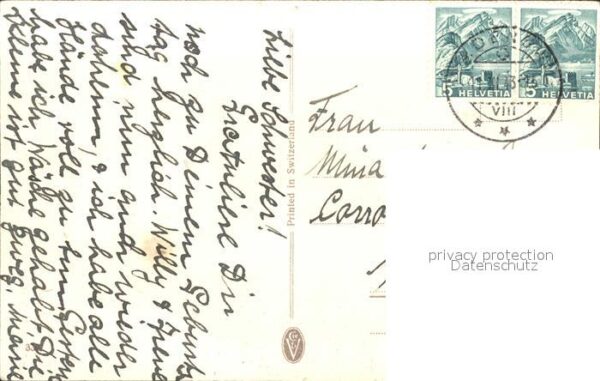 Liebe Schwester!
Gratuliere Dir
noch zu Deinem Geburts
tag herzlich. Willy & Irene
sind nun auch wieder
daheim, & ich habe alle
Hände voll zu tun. Gestern
habe ich Wäsche gehabt. Die
Kleine ist gut zuweg.
Printed in Switzerland
Frau
Mina
HELVETIA
5
HELVETIA
5
VIII
privacy protection
Datenschutz